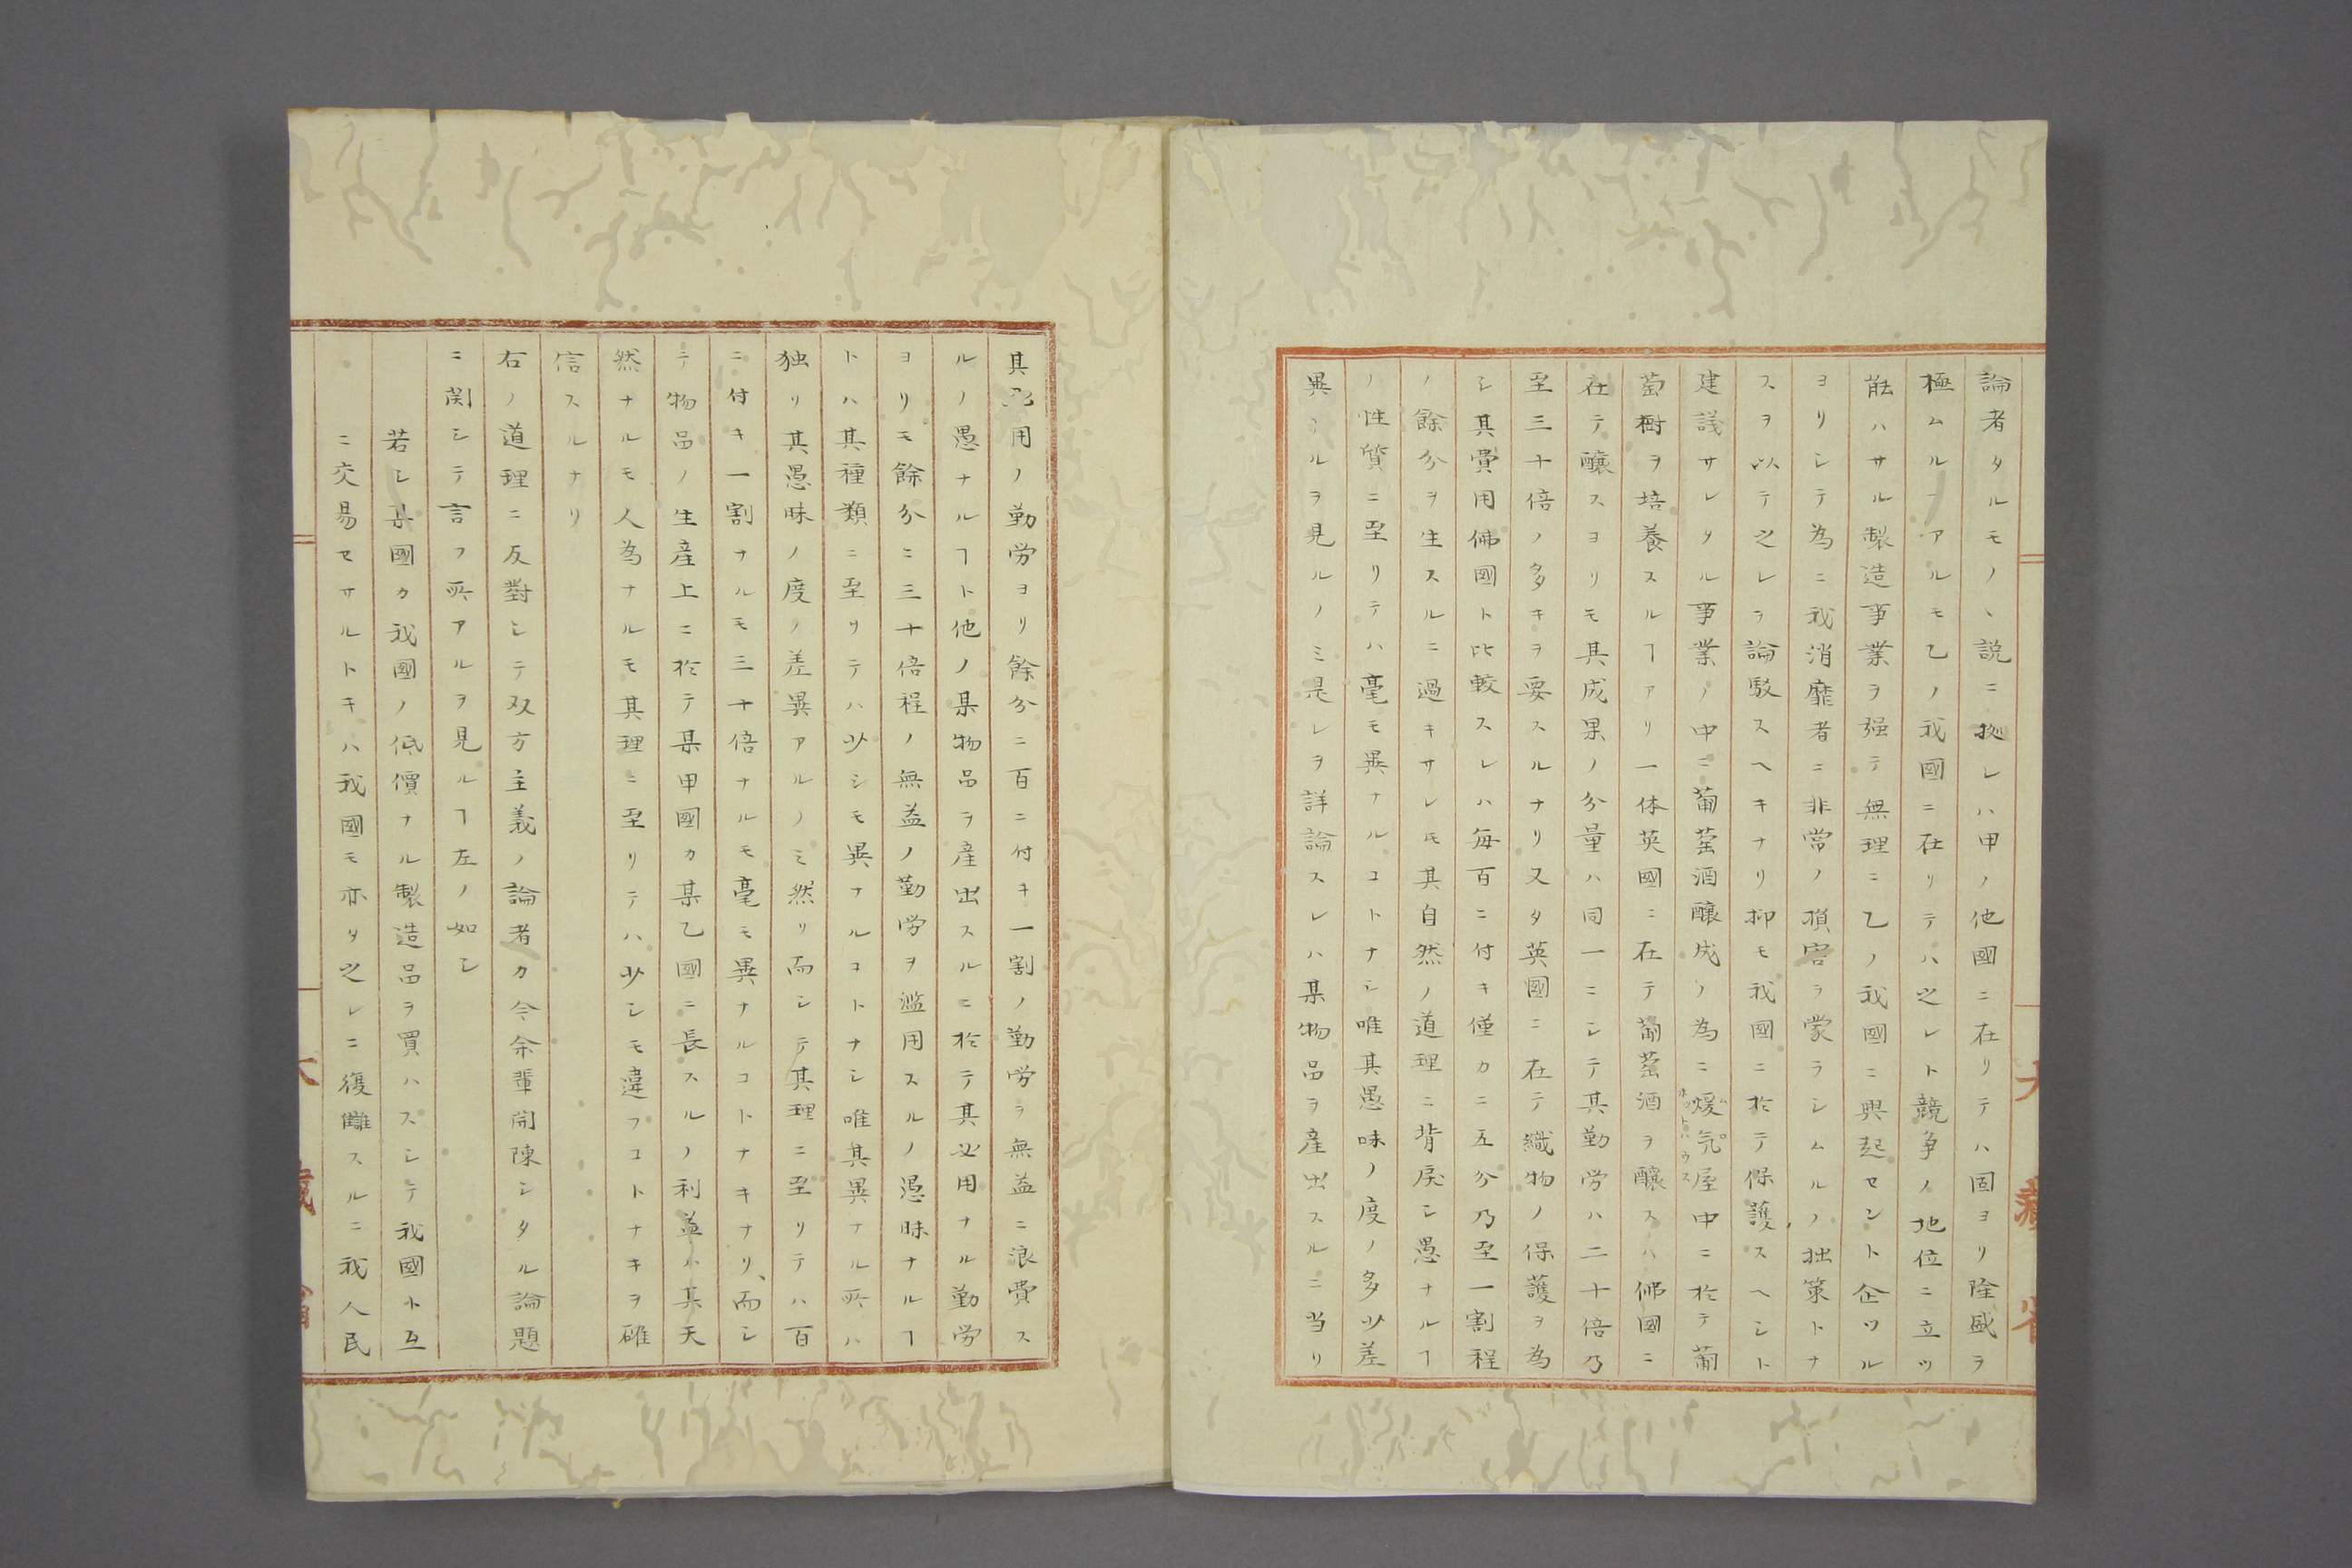 論者タルモノヽ説ニ拠レハ甲ノ他國ニ在リテハ固ヨリ隆盛ヲ
極ムルヿアルモ乙ノ我國ニ在リテハ之レト競争ノ地位ニ立ツ
能ハサル製造事業ヲ强テ無理ニ乙ノ我國ニ興起セント企ツル
ヨリシテ為ニ我消靡者ニ非常ノ損害ヲ蒙ラシムルノ拙策トナ
スヲ以テ之レヲ論駁スヘキナリ抑モ我國ニ於テ保護スヘシト
建議サレタル事業ノ中ニ葡萄酒醸成ノ為ニ煖氣屋中ニ於テ葡
ホットハウス
萄樹ヲ培養スルヿアリ一体英國ニ在テ葡萄酒ヲ醸スハ佛國ニ
在テ醸スヨリモ其成果ノ分量ハ同一ニシテ其勤労ハ二十倍乃
至三十倍ノ多キヲ要スルナリ又タ英國ニ在テ織物ノ保護ヲ為
シ其費用佛國ト比較スレハ毎百ニ付キ僅カニ五分乃至一割程
ノ餘分ヲ生スルニ過キサレ𪜈其自然ノ道理ニ背戻シ愚ナルヿ
ノ性質ニ至リテハ毫モ異ナルコトナシ唯其愚味ノ度ノ多少差
異ヽルヲ見ルノミ是レヲ詳論スレハ某物品ヲ産出スルニ当リ
其必用ノ勤労ヨリ餘分ニ百ニ付キ一割ノ勤労ヲ無益ニ浪費ス
ルノ愚ナルヿト他ノ某物品ヲ産出スルニ於テ其必用ナル勤労
ヨリモ餘分ニ三十倍程ノ無益ノ勤労ヲ濫用スルノ愚昧ナルヿ
トハ其種類ニ至リテハ少シモ異ナルコトナシ唯其異ナル所ハ
独リ其愚昧ノ度ノ差異アルノミ然リ而シテ其理ニ至リテハ百
ニ付キ一割ナルモ三十倍ナルモ毫モ異ナルコトナキナリ、而シ
テ物品ノ生産上ニ於テ某甲國カ某乙國ニ長スルノ利益ハ其天
然ナルモ人為ナルモ其理ニ至リテハ少シモ違フコトナキヲ確
信スルナリ
右ノ道理ニ反對シテ双方主義ノ論者カ今余輩開陳シタル論題
ニ関シテ言フ所アルヲ見ルヿ左ノ如シ
若シ某國カ我國ノ低價ナル製造品ヲ買ハスシテ我國ト互
ニ交易セサルトキハ我國モ亦タ之レニ復讎スルニ我人民
大藏省